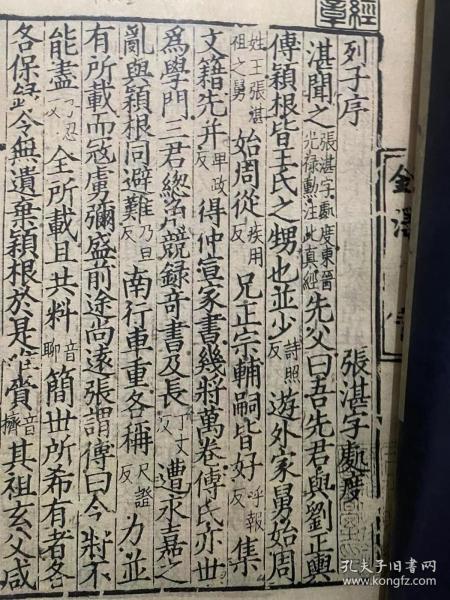 經章
金澤
列子序
張湛字處度
湛聞之張湛字處度東晉光祿勳注此真經先父曰吾先君與劉正輿
傅穎根皆王氏之甥也並少詩照反遊外家舅始周
姓王張湛祖之舅始周從疾用反兄正宗輔嗣皆好呼報反集
文籍先并卑政反得仲宣家書幾將萬卷傅氏亦世
為學門三君總角競錄奇書及長丁丈反遭永嘉之
亂與穎根同避難乃旦反南行車重各稱尺證反力並
有所載而寇虜彌盛前途尚遠張謂傅曰今將不
能盡子忍反全所載且共料音聊簡世所希有者各
各保錄令無遺棄穎根於是唯賫音擠其祖玄父咸
孔夫子旧书网
kongfz.com